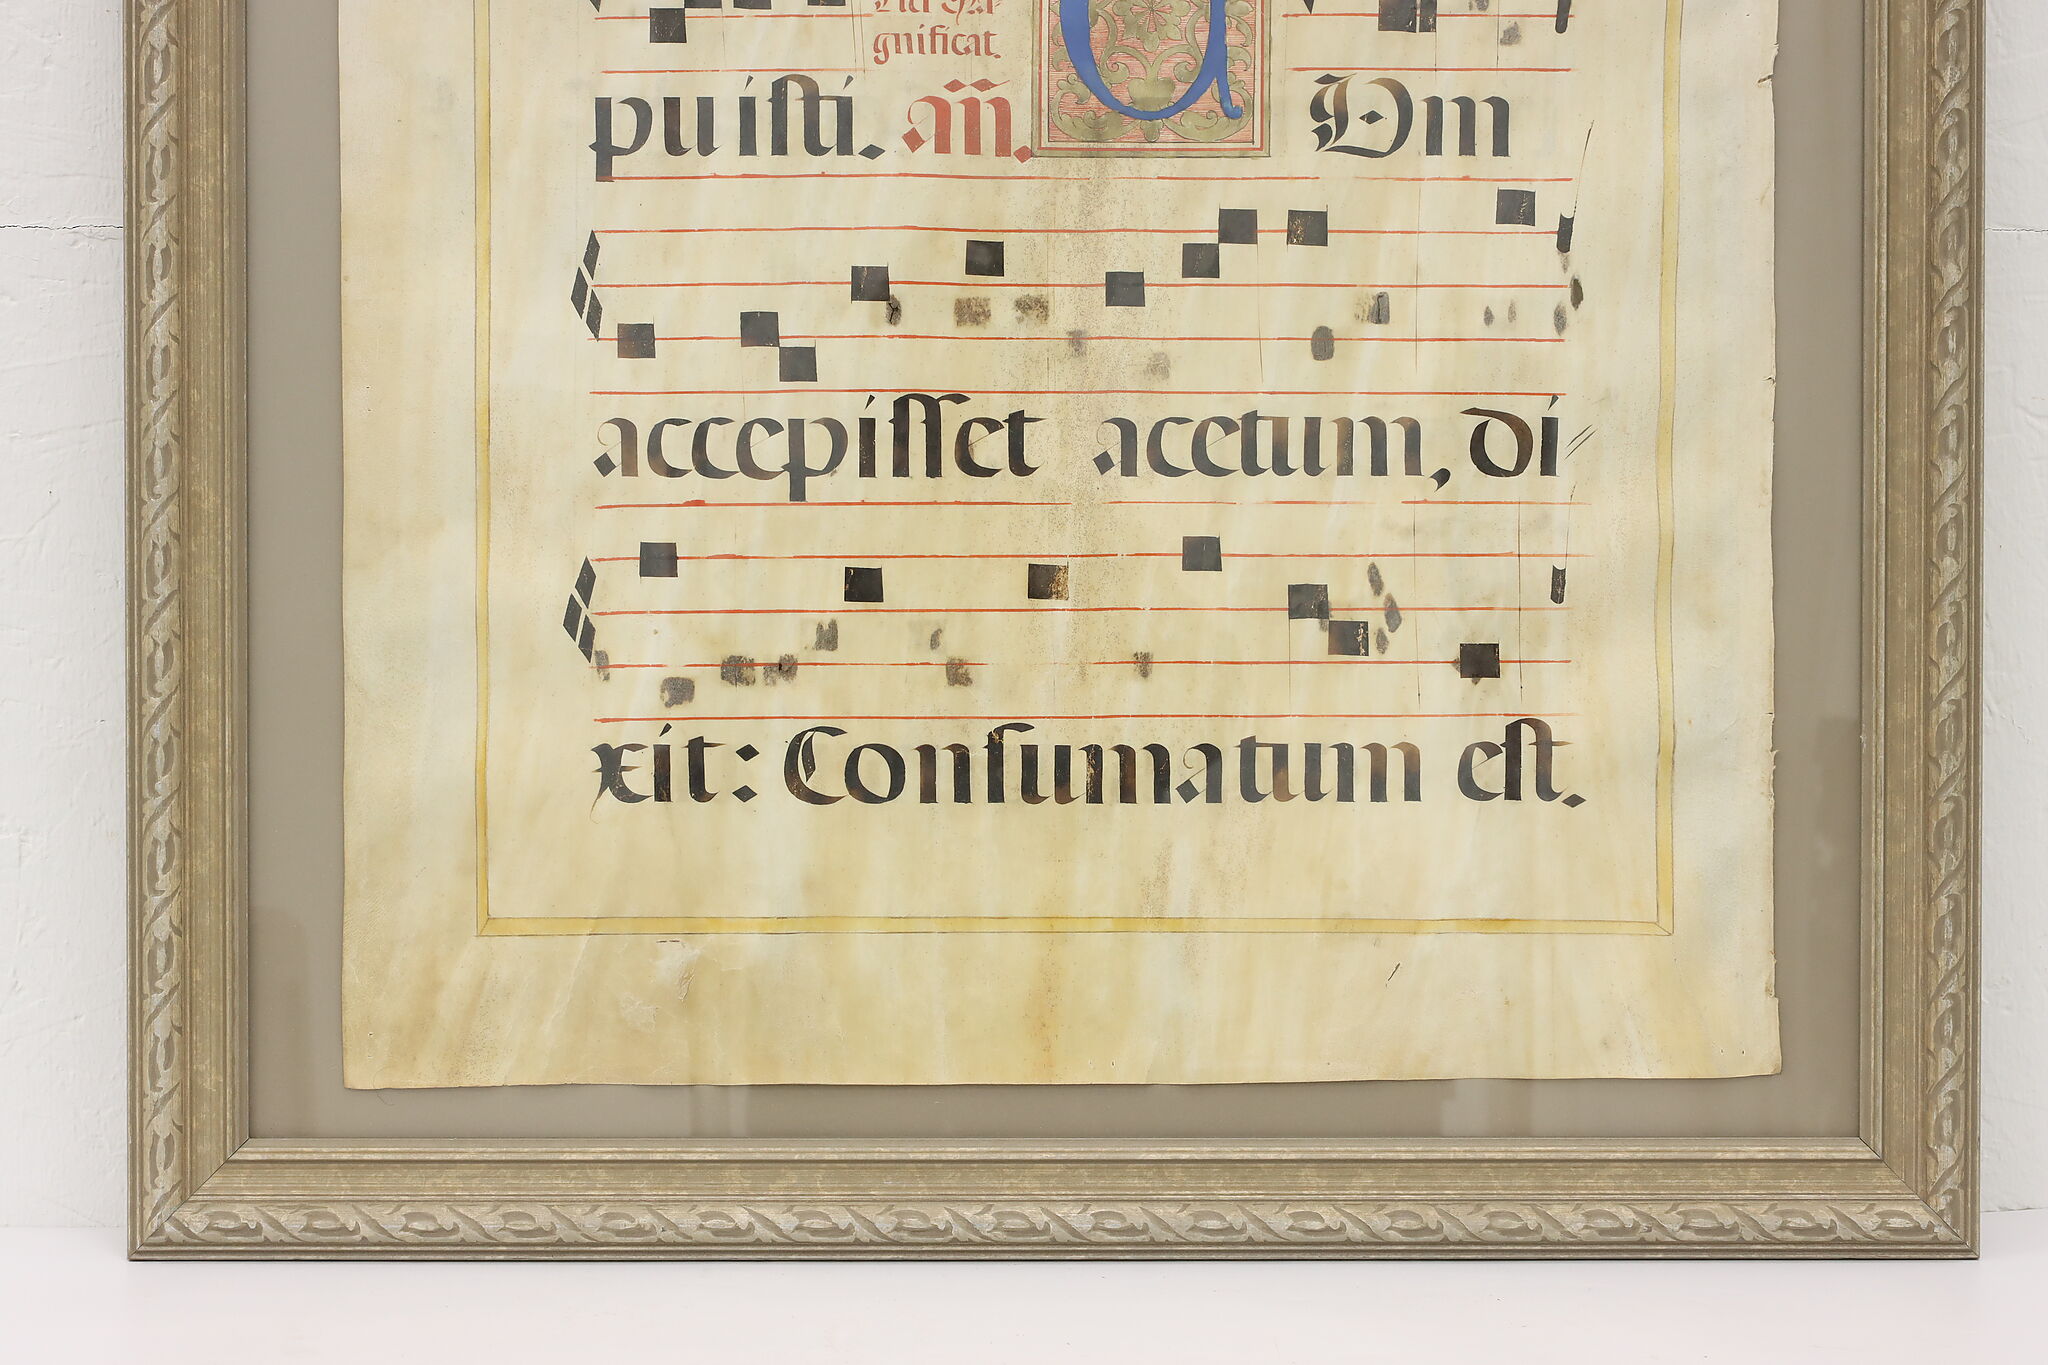 gnificat.
puisti. añ. C Om
accepisset acetum, di
xit: Consumatum est.